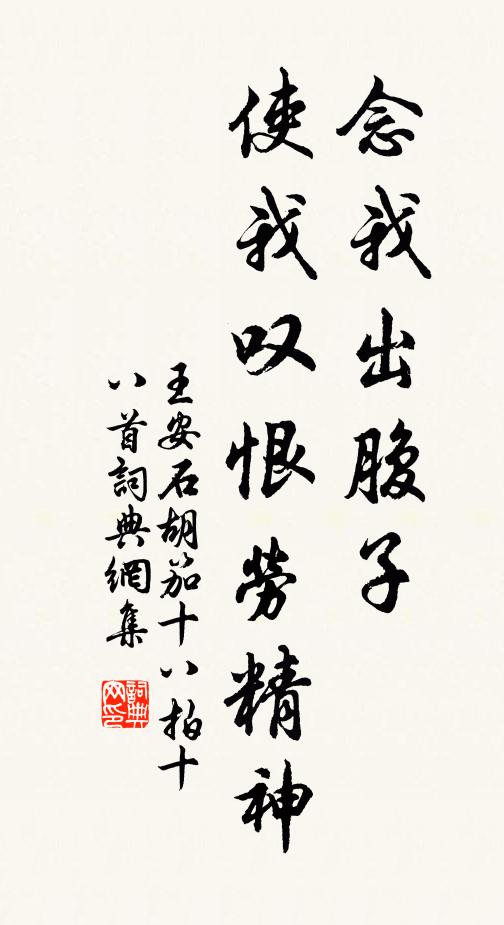 念我出腹子
使我叹恨勞精神
王安石胡笳十八拍十
八首詞典網集
詞典
网印